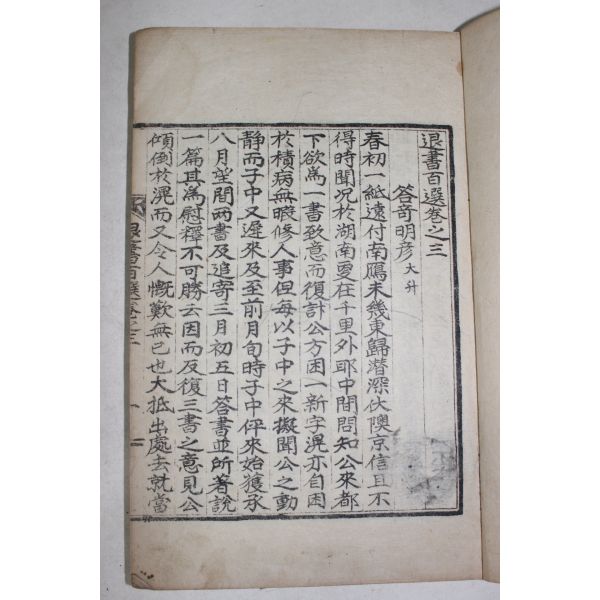 退書百選卷之三
答奇明彦大升
春初一紙遠付南鴈未幾東歸潛深伏隩京信且不
得時聞况於湖南敻在千里外耶中間問知公來都
下欲爲一書致意而復計公方困一新字滉亦自困
於積病無暇修人事但每以子中之來擬聞公之動
靜而子中又遲來及至前月旬時子中伻來始獲承
八月望間兩書及追寄三月初五日答書並所著說
一篇其爲慰釋不可勝去因而反復三書之意見公
傾倒於滉而又令人慨歎無已也大抵出處去就當
退書百選卷之三